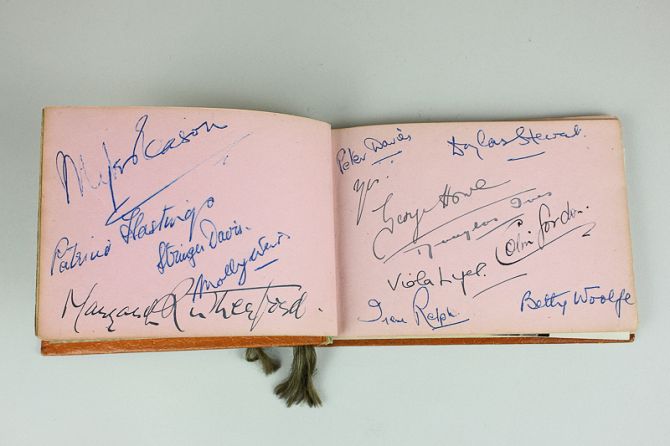 Myles Eason
Patricia Hastings
Stringer Davis.
Molly Weir
Margaret Rutherford.
Peter Davies
Douglas Stewart.
George Howe
Douglas Ives
Colin Gordon.
Viola Lyel.
Irene Ralph.
Betty Woolfe